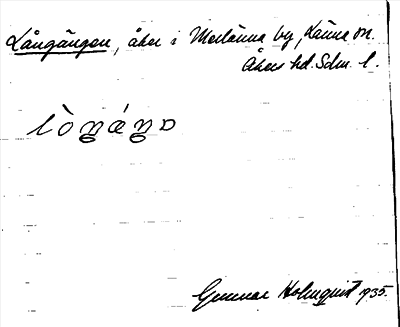 Långängen, åker i Merlänna by, Länna sn.
Åkers hd. Sdm. l.
lòŋáŋɒ
Gunnar Holmquist 1935.